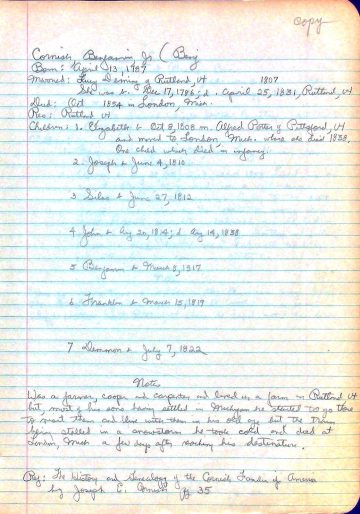 Copy
Cornish Benjamin Jr (Benj
Born: April 13, 1787
Married: Lucy Deming of Rutland, Vt 1807
She was b. Dec 17, 1786; d. April 25, 1831, Rutland, Vt
Died: Oct 1854 in London, Mich.
Res: Rutland Vt
Children: 1. Elizabeth b Oct 8, 1808 m. Alfred Porter of Pittsford, Vt
and moved to London, Mich. where she died 1838,
One child which died in infancy.
2. Joseph b June 4, 1810
3 Silas b June 27, 1812
4 John b Aug 20, 1814; d Aug 14, 1838
5 Benjamin b March 8, 1817
6 Franklin b March 15, 1819
7 Demmon b July 7, 1822
Notes
Was a farmer, cooper and carpenter and lived on a farm in Rutland Vt
but, most of his sons having settled in Michigan he started to go there
to visit them and live with them in his old age but the train
being stalled in a snowstorm he took cold and died at
London, Mich a few days after reaching his destination.
Ref: The History and Genealogy of the Cornish Families of America
by Joseph E. Cornish pg 35